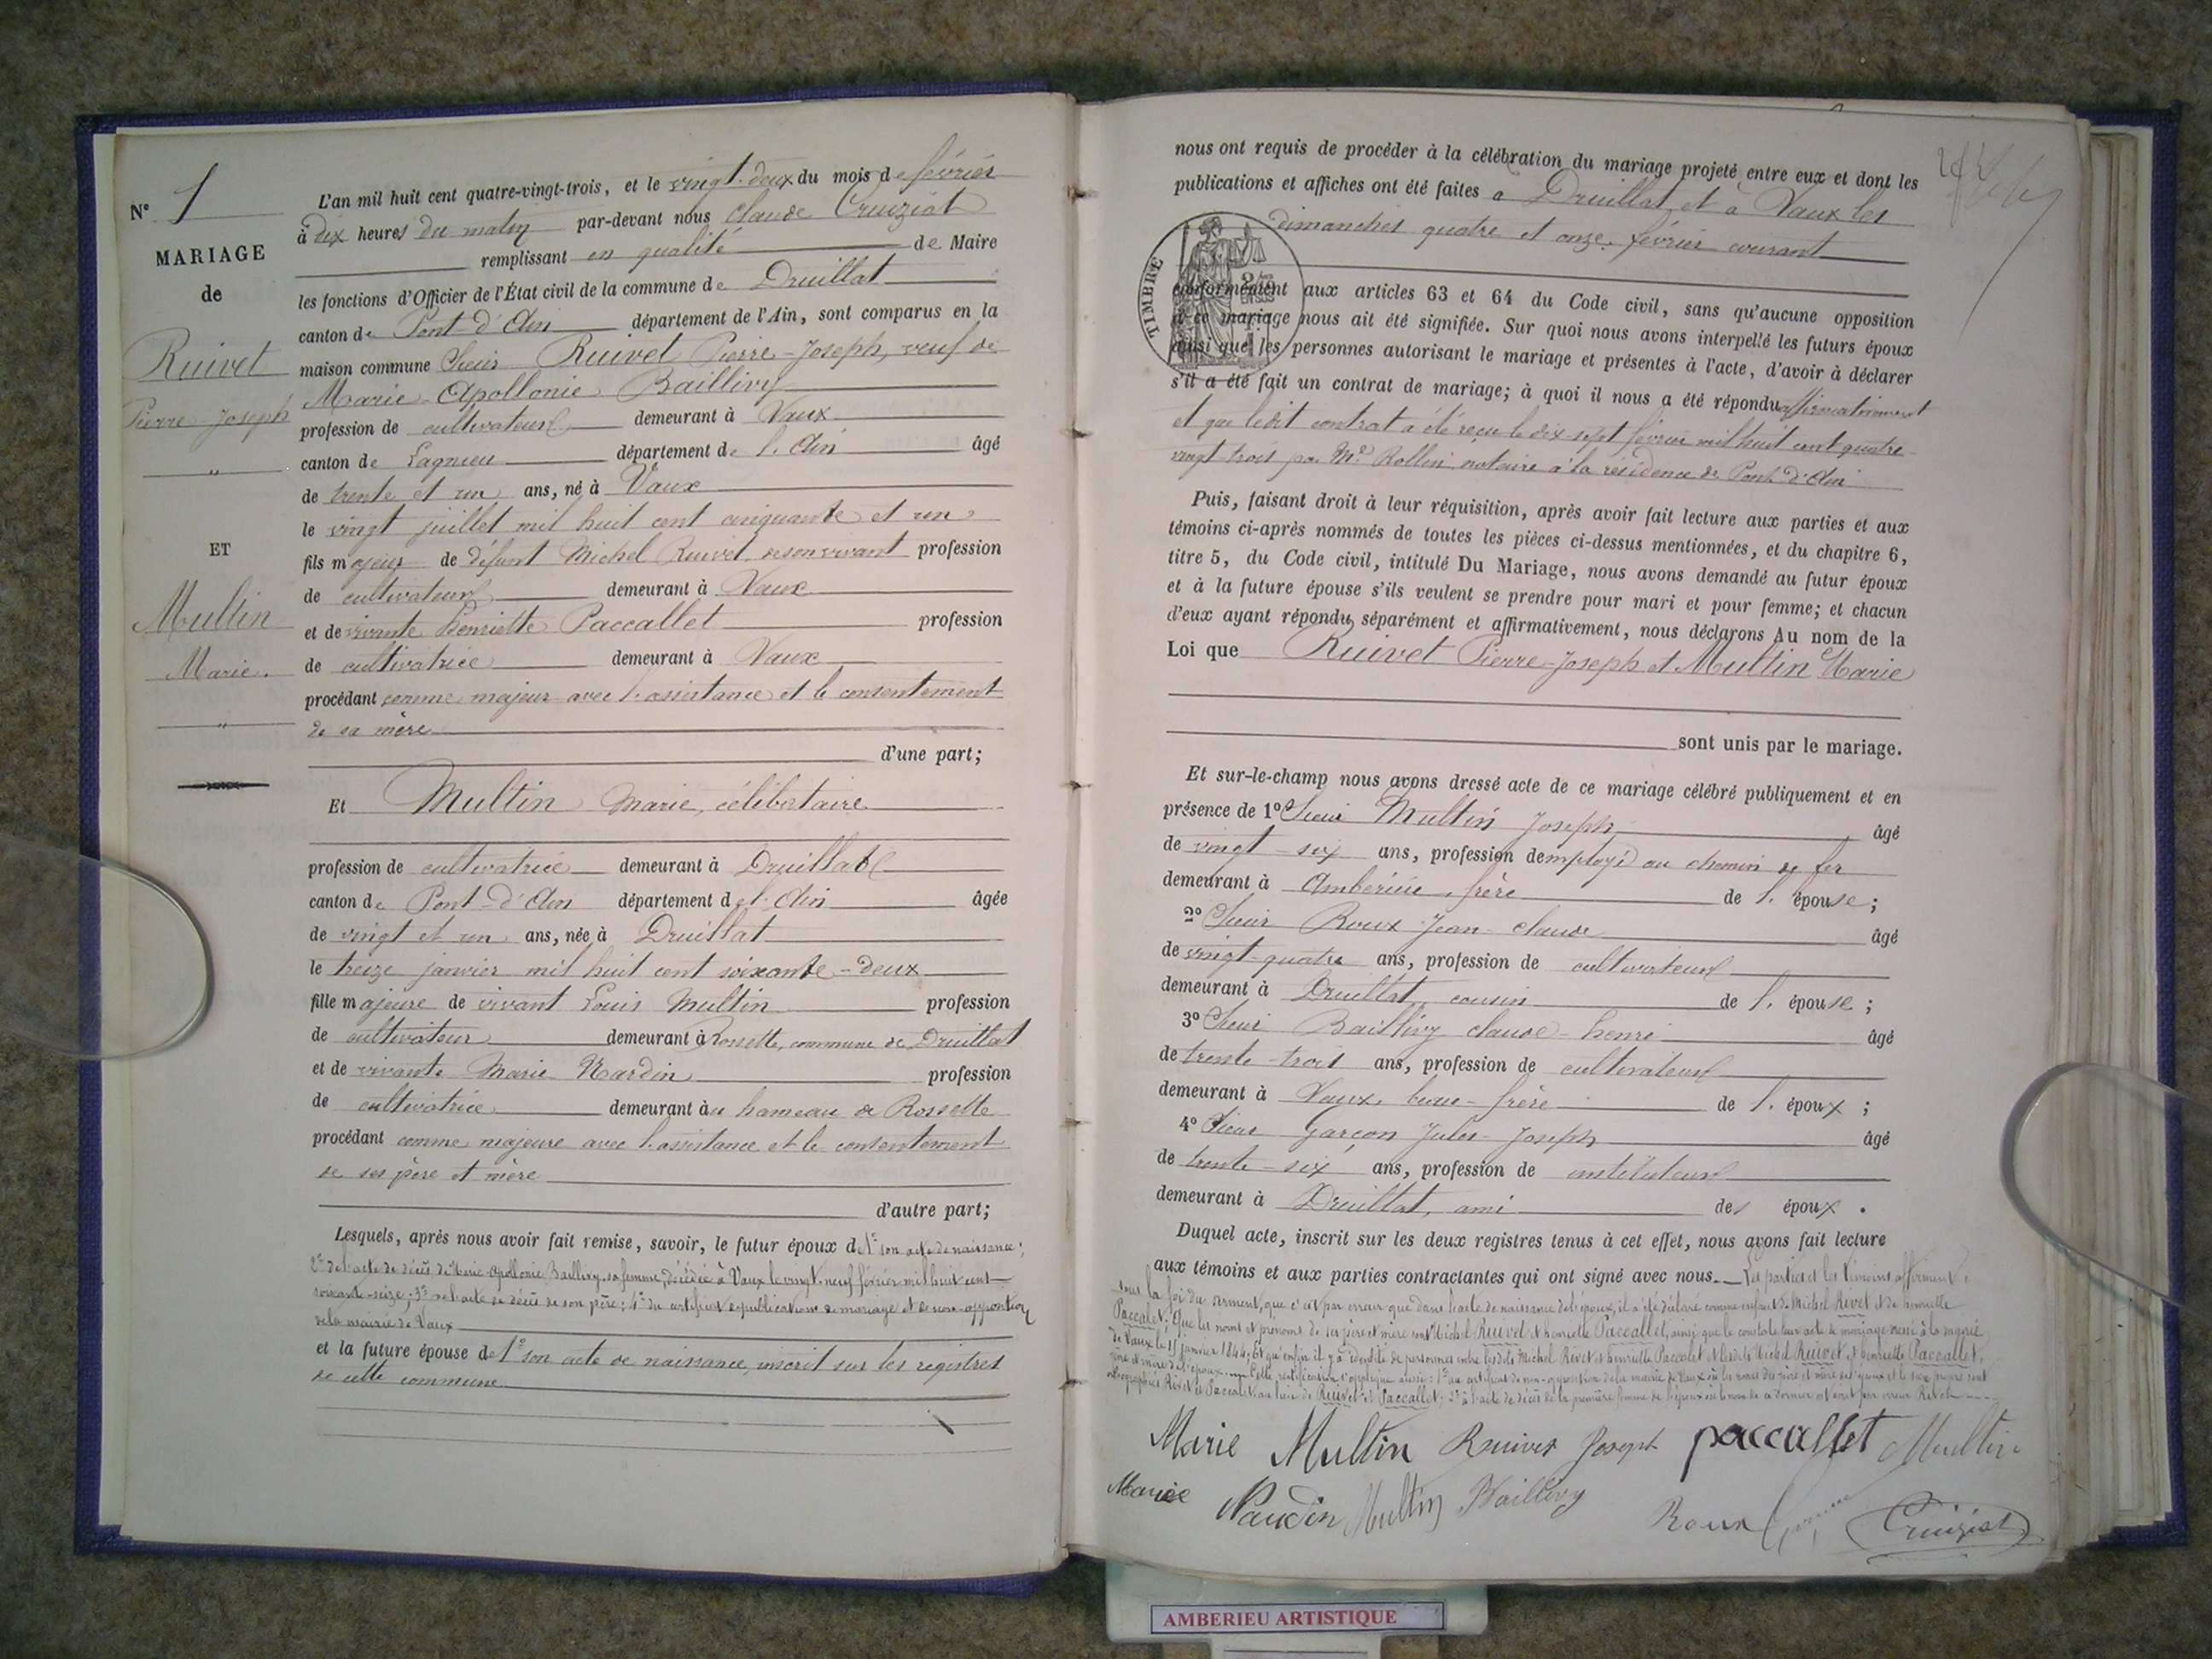 N° 1
MARIAGE
de
Ruivet
Pierre-Joseph
"
ET
Multin
Marie.
"
L'an mil huit cent quatre-vingt-trois, et le vingt-deux du mois de février
à dix heures du matin par-devant nous Claude Cruiziat
remplissant en qualité de Maire
les fonctions d'Officier de l'État civil de la commune de Druillat
canton de Pont-d'Ain département de l'Ain, sont comparus en la
maison commune Sieur Ruivet Pierre-Joseph, veuf de
Marie-Apollonie Baillivy
profession de cultivateur demeurant à Vaux
canton de Lagnieu département de l'Ain âgé
de trente et un ans, né à Vaux
le vingt juillet mil huit cent cinquante et un
fils majeur de défunt Michel Ruivet de son vivant profession
de cultivateur demeurant à Vaux
et de vivante henriette Paccallet profession
de cultivatrice demeurant à Vaux
procédant comme majeur avec l'assistance et le consentement
de sa mère
d'une part;
Et Multin Marie, célibataire
profession de cultivatrice demeurant à Druillat
canton de Pont-d'Ain département de l'Ain âgée
de vingt et un ans, née à Druillat
le treize janvier mil huit cent soixante-deux
fille majeure de vivant Louis Multin profession
de cultivateur demeurant à Rossette, commune de Druillat
et de vivante Marie Nardin profession
de cultivatrice demeurant au hameau de Rossette
procédant comme majeure avec l'assistance et le consentement
de ses père et mère
d'autre part;
Lesquels, après nous avoir fait remise, savoir, le futur époux de 1° son acte de naissance;
2° de l'acte de décès de Marie-Apollonie Baillivy, sa femme, décédée à Vaux le vingt-neuf février mil huit cent
soixante-seize; 3° de l'acte de décès de son père; 4° du certificat de publications de mariage et de non-opposition
de la mairie de Vaux
et la future épouse de 1° son acte de naissance, inscrit sur les registres
de cette commune
nous ont requis de procéder à la célébration du mariage projeté entre eux et dont les
publications et affiches ont été faites à Druillat et à Vaux les
dimanches quatre et onze février courant
TIMBRE
conformément aux articles 63 et 64 du Code civil, sans qu'aucune opposition
à ce mariage nous ait été signifiée. Sur quoi nous avons interpellé les futurs époux
ainsi que les personnes autorisant le mariage et présentes à l'acte, d'avoir à déclarer
s'il a été fait un contrat de mariage; à quoi il nous a été répondu affirmativement
et que ledit contrat a été reçu le dix-sept février mil huit cent quatre-
vingt-trois par Me Rollin notaire à la résidence de Pont-d'Ain
Puis, faisant droit à leur réquisition, après avoir fait lecture aux parties et aux
témoins ci-après nommés de toutes les pièces ci-dessus mentionnées, et du chapitre 6,
titre 5, du Code civil, intitulé Du Mariage, nous avons demandé au futur époux
et à la future épouse s'ils veulent se prendre pour mari et pour femme; et chacun
d'eux ayant répondu séparément et affirmativement, nous déclarons Au nom de la
Loi que Ruivet Pierre-Joseph et Multin Marie
sont unis par le mariage.
Et sur-le-champ nous avons dressé acte de ce mariage célébré publiquement et en
présence de 1° Sieur Multin Joseph âgé
de vingt-six ans, profession d'employé au chemin de fer
demeurant à Ambérieu, frère de l'épouse;
2° Sieur Roux Jean-Claude âgé
de vingt-quatre ans, profession de cultivateur
demeurant à Druillat, cousin de l'épouse;
3° Sieur Baillivy claude-henri âgé
de trente-trois ans, profession de cultivateur
demeurant à Vaux, beau-frère de l'époux;
4° Sieur Garçon Jules-Joseph âgé
de trente-six ans, profession de instituteur
demeurant à Druillat, ami des époux.
Duquel acte, inscrit sur les deux registres tenus à cet effet, nous avons fait lecture
aux témoins et aux parties contractantes qui ont signé avec nous. Les parties et les témoins affirment,
sous la foi du serment, que c'est par erreur que dans l'acte de naissance de l'époux, il a été déclaré comme enfant de Michel Rivet et de henriette
Paccalet; Que les noms et prénoms de ses père et mère sont Michel Ruivet et henriette Paccallet, ainsi que le constate leur acte de mariage dressé à la mairie
de Vaux le 15 janvier 1844; Et qu'enfin il y a identité de personnes entre lesdits Michel Rivet et henriette Paccalet et lesdits Michel Ruivet et henriette Paccallet,
père et mère de l'époux. Cette rectification s'applique aussi: 1° au certificat de non-opposition de la mairie de Vaux où les noms des père et mère de l'époux et le sien propre sont
orthographiés Rivet et Paccalet au lieu de Ruivet et Paccallet; 2° à l'acte de décès de la première femme de l'époux où le nom de ce dernier est écrit par erreur Rivet
Marie Multin Ruivet Joseph paccallet Multin
Marie Nardin Multin Baillivy Roux Garçon Cruiziat
AMBERIEU ARTISTIQUE